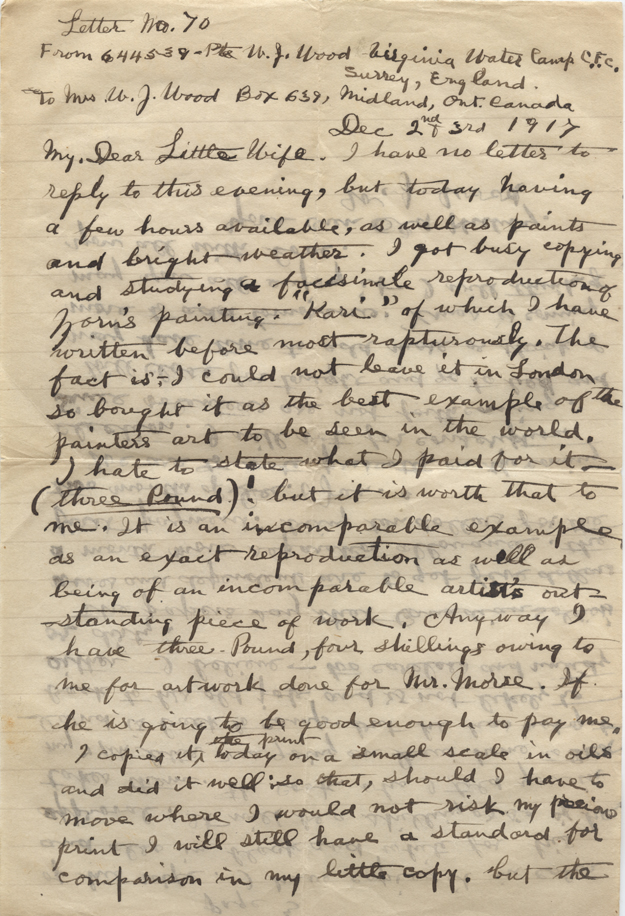 Letter No. 70
From 644539 - Pte W. J. Wood Virginia Water Camp C.F.C.
Surrey, England.
To Mrs W. J. Wood Box 639, Midland, Ont. Canada
Dec 2nd 3rd 1917
My Dear Little Wife. I have no letter to
reply to this evening, but today having
a few hours available, as well as paints
and bright weather. I got busy copying
and studying a facisimile reproduction of
Zorn's painting. "Kari" of which I have
written before most rapturously. The
fact is:- I could not leave it in London
so bought it as the best example of the
painters art to be seen in the world.
I hate to state what I paid for it -
(three Pound)! but it is worth that to
me. It is an incomparable example
as an exact reproduction as well as
being of an incomparable artist's out-
standing piece of work. Any way I
have three Pound, four shillings owing to
me for art work done for Mr. Morse. If
he is going to be good enough to pay me.
I copied it, the print today on a small scale in oils
and did it well: so that, should I have to
move where I would not risk my precious
print I will still have a standard for
comparison in my little copy. but the